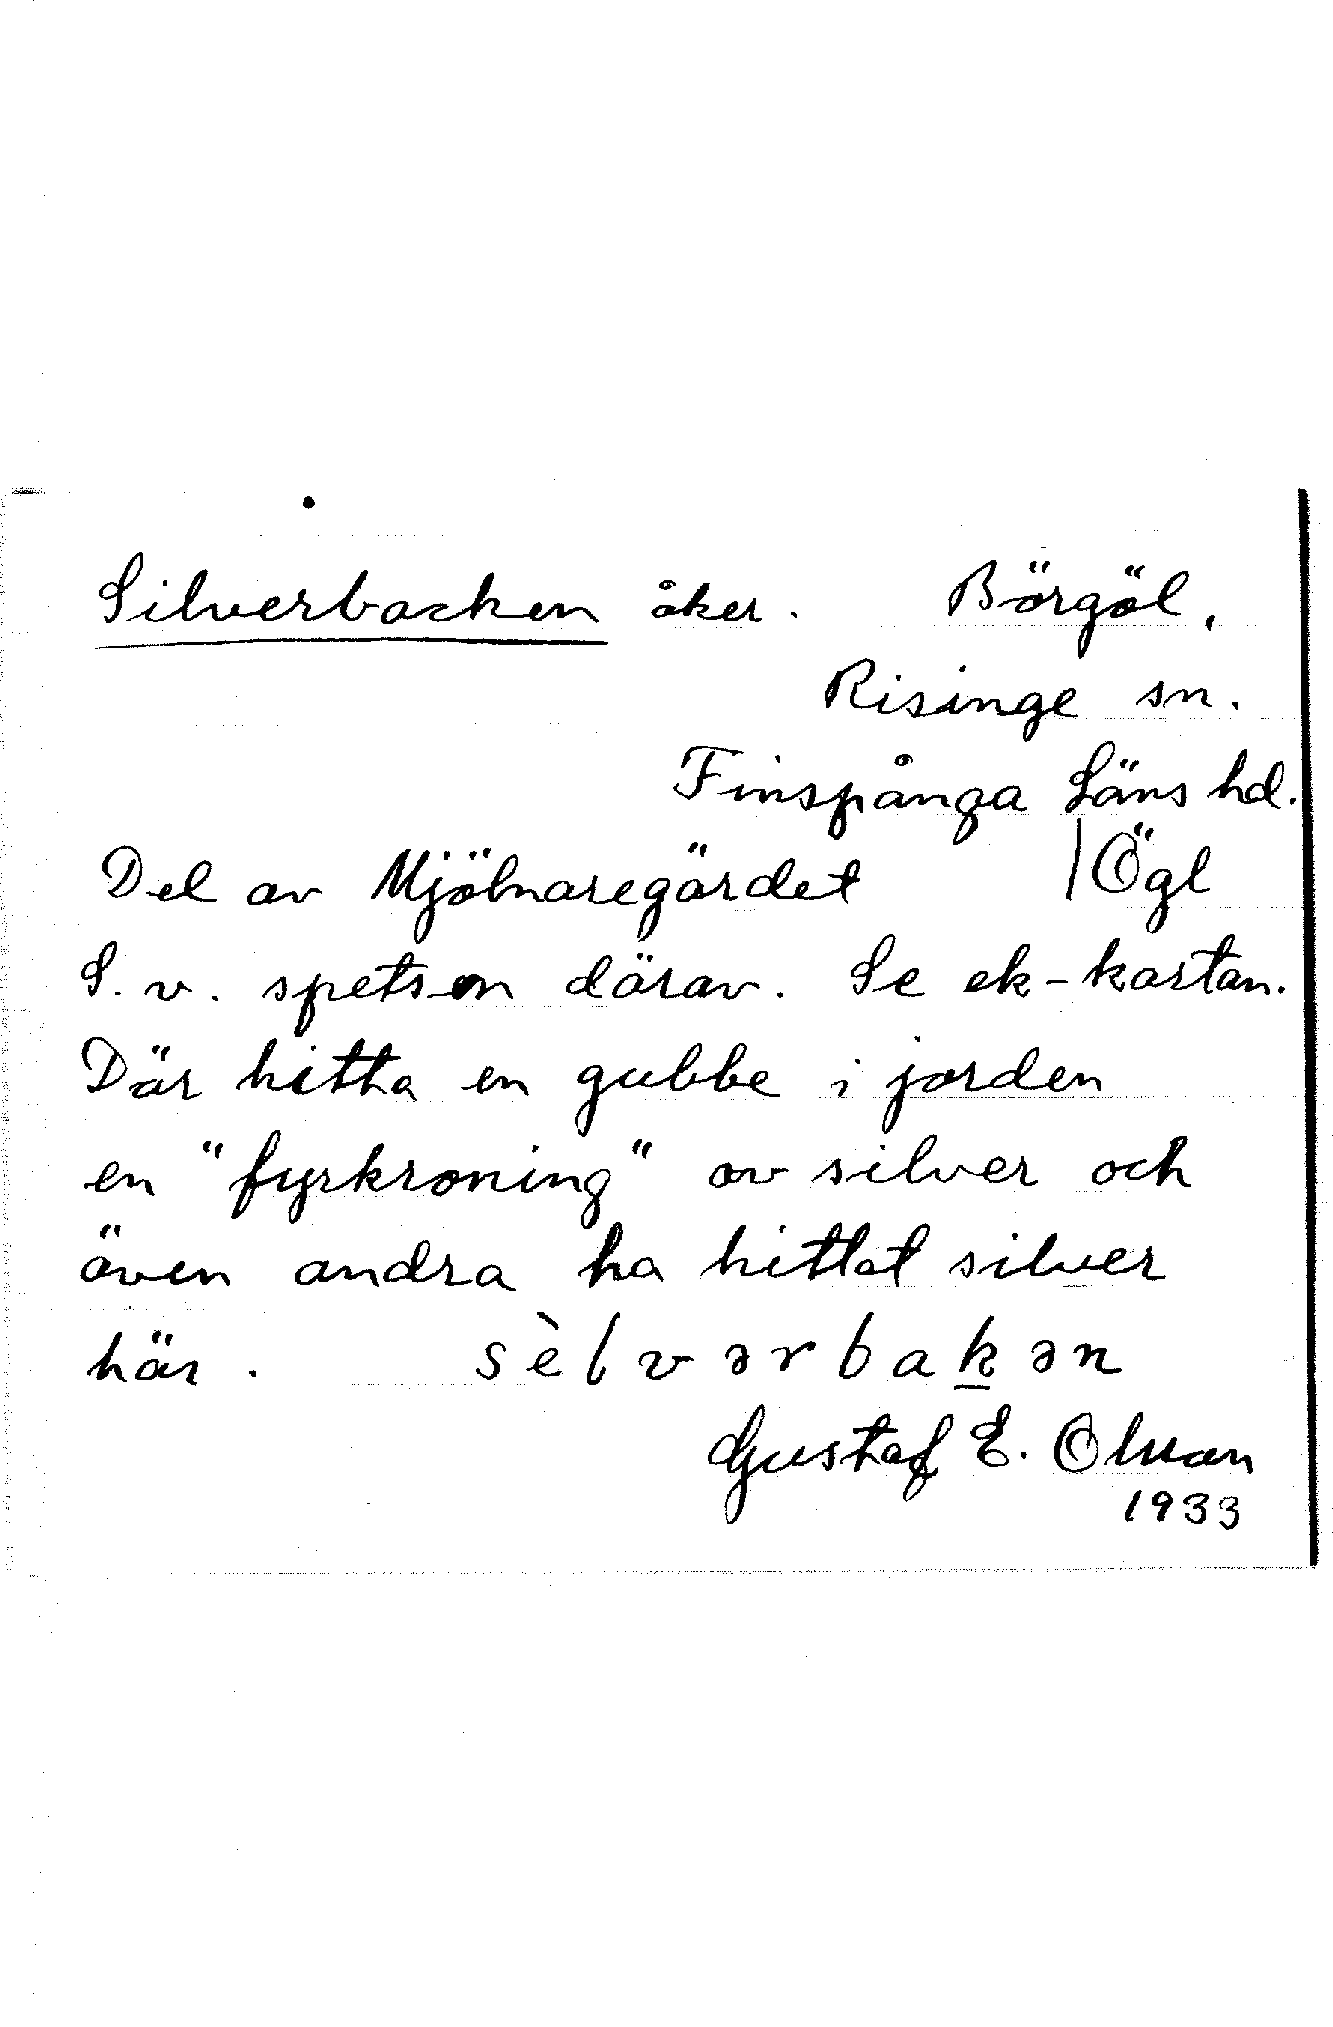 Silverbacken åker. Börgöl,
Risinge sn.
Finspånga Läns hd.
Del av Mjölnaregärdet | Ögl
S.v. spetsen därav. Se ek-kartan.
Där hitta en gubbe i jorden
en "fyrkroning" av silver och
även andra ha hittat silver
här. sèlvərbakən
Gustaf E. Olsson
1933